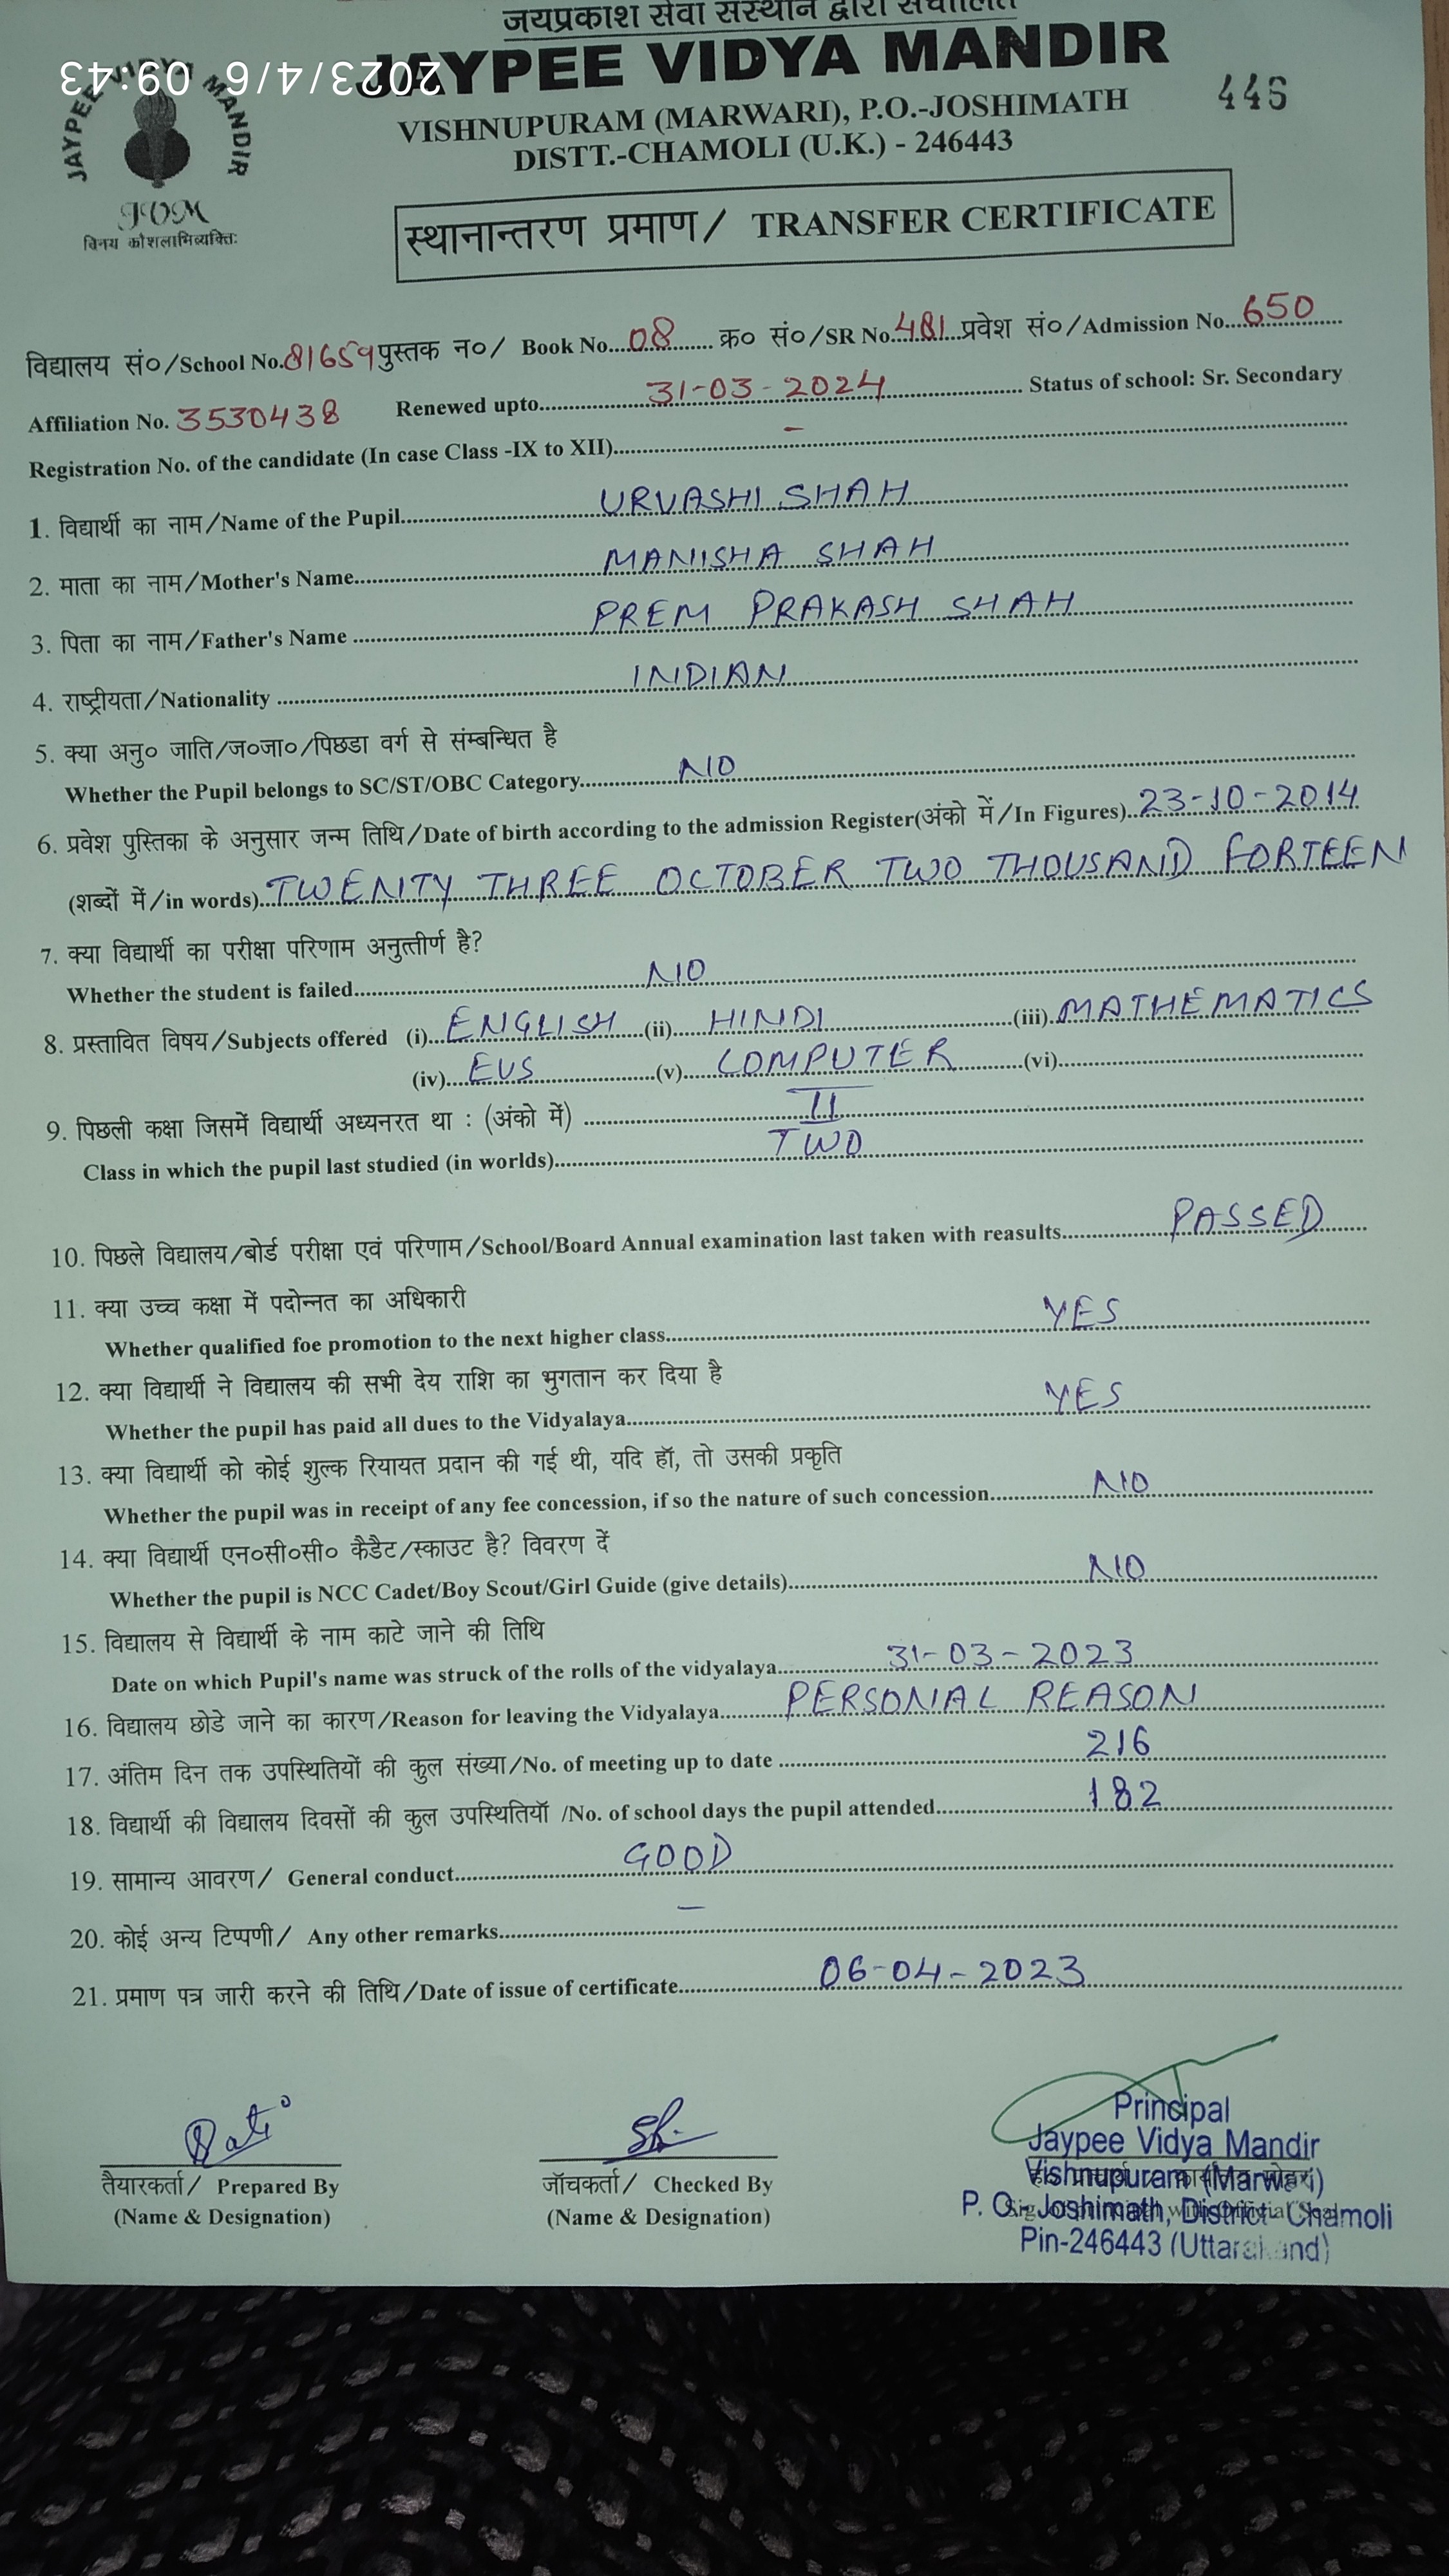 जयप्रकाश सेवा संस्थान द्वारा संचालित
JAYPEE VIDYA MANDIR
2023/4/6 09:43
JAYPEE VIDYA MANDIR
446
VISHNUPURAM (MARWARI), P.O.-JOSHIMATH
DISTT.-CHAMOLI (U.K.) - 246443
JVM
विनय कौशलाभिव्यक्तिः
स्थानान्तरण प्रमाण/ TRANSFER CERTIFICATE
विद्यालय सं०/School No. 81659 पुस्तक न०/ Book No. 08 क्र० सं०/SR No. 481 प्रवेश सं०/Admission No. 650
Affiliation No. 3530438 Renewed upto 31-03-2024 Status of school: Sr. Secondary
Registration No. of the candidate (In case Class -IX to XII) -
1. विद्यार्थी का नाम/Name of the Pupil URVASHI SHAH
2. माता का नाम/Mother's Name MANISHA SHAH
3. पिता का नाम/Father's Name PREM PRAKASH SHAH
4. राष्ट्रीयता/Nationality INDIAN
5. क्या अनु० जाति/ज०जा०/पिछडा वर्ग से संम्बन्धित है
Whether the Pupil belongs to SC/ST/OBC Category NO
6. प्रवेश पुस्तिका के अनुसार जन्म तिथि/Date of birth according to the admission Register(अंको में/In Figures) 23-10-2014
(शब्दों में/in words) TWENTY THREE OCTOBER TWO THOUSAND FORTEEN
7. क्या विद्यार्थी का परीक्षा परिणाम अनुत्तीर्ण है?
Whether the student is failed NO
8. प्रस्तावित विषय/Subjects offered (i) ENGLISH (ii) HINDI (iii) MATHEMATICS
(iv) EVS (v) COMPUTER (vi)
9. पिछली कक्षा जिसमें विद्यार्थी अध्यनरत था : (अंको में) II
Class in which the pupil last studied (in worlds) TWO
10. पिछले विद्यालय/बोर्ड परीक्षा एवं परिणाम/School/Board Annual examination last taken with reasults PASSED
11. क्या उच्च कक्षा में पदोन्नत का अधिकारी
Whether qualified foe promotion to the next higher class YES
12. क्या विद्यार्थी ने विद्यालय की सभी देय राशि का भुगतान कर दिया है
Whether the pupil has paid all dues to the Vidyalaya YES
13. क्या विद्यार्थी को कोई शुल्क रियायत प्रदान की गई थी, यदि हॉ, तो उसकी प्रकृति
Whether the pupil was in receipt of any fee concession, if so the nature of such concession NO
14. क्या विद्यार्थी एन०सी०सी० कैडैट/स्काउट है? विवरण दें
Whether the pupil is NCC Cadet/Boy Scout/Girl Guide (give details) NO
15. विद्यालय से विद्यार्थी के नाम काटे जाने की तिथि
Date on which Pupil's name was struck of the rolls of the vidyalaya 31-03-2023
16. विद्यालय छोडे जाने का कारण/Reason for leaving the Vidyalaya PERSONAL REASON
17. अंतिम दिन तक उपस्थितियों की कुल संख्या/No. of meeting up to date 216
18. विद्यार्थी की विद्यालय दिवसों की कुल उपस्थितियॉ /No. of school days the pupil attended 182
19. सामान्य आवरण/ General conduct GOOD
20. कोई अन्य टिप्पणी/ Any other remarks -
21. प्रमाण पत्र जारी करने की तिथि/Date of issue of certificate 06-04-2023
तैयारकर्ता/ Prepared By
(Name & Designation)
जॉचकर्ता/ Checked By
(Name & Designation)
Principal
Jaypee Vidya Mandir
Vishnupuram (Marwari)
P. O.- Joshimath, District- Chamoli
Pin-246443 (Uttarakhand)